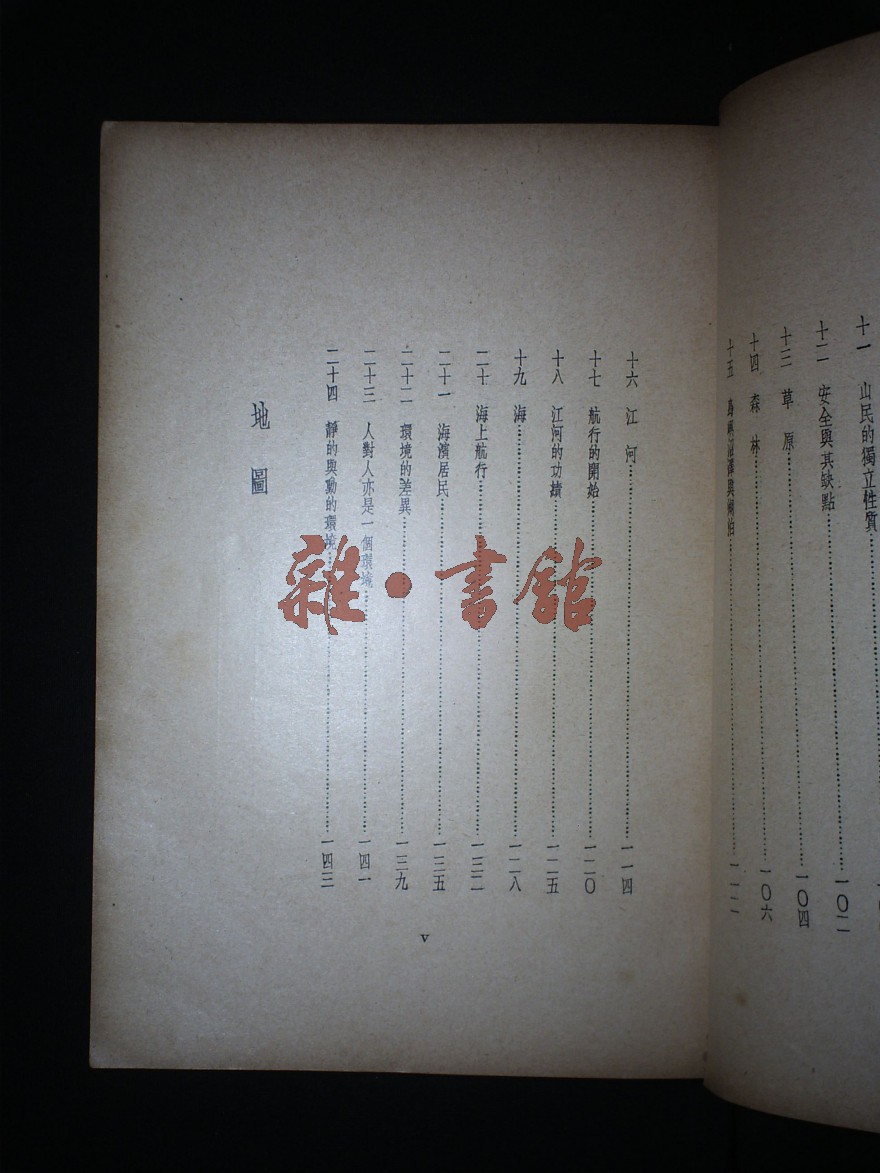 十一 山民的獨立性質
十二 安全與其缺點 一〇二
十三 草原 一〇四
十四 森林 一〇六
十五 與沼澤與湖泊 一一二
十六 江河 一一四
十七 航行的開始 一二〇
十八 江河的功績 一二五
十九 海 一二八
二十 海上航行 一三二
二十一 海濱居民 一三五
二十二 環境的差異 一三九
二十三 人對人亦是一個環境 一四一
二十四 靜的與動的環境 一四三
地圖
v
雜·書館